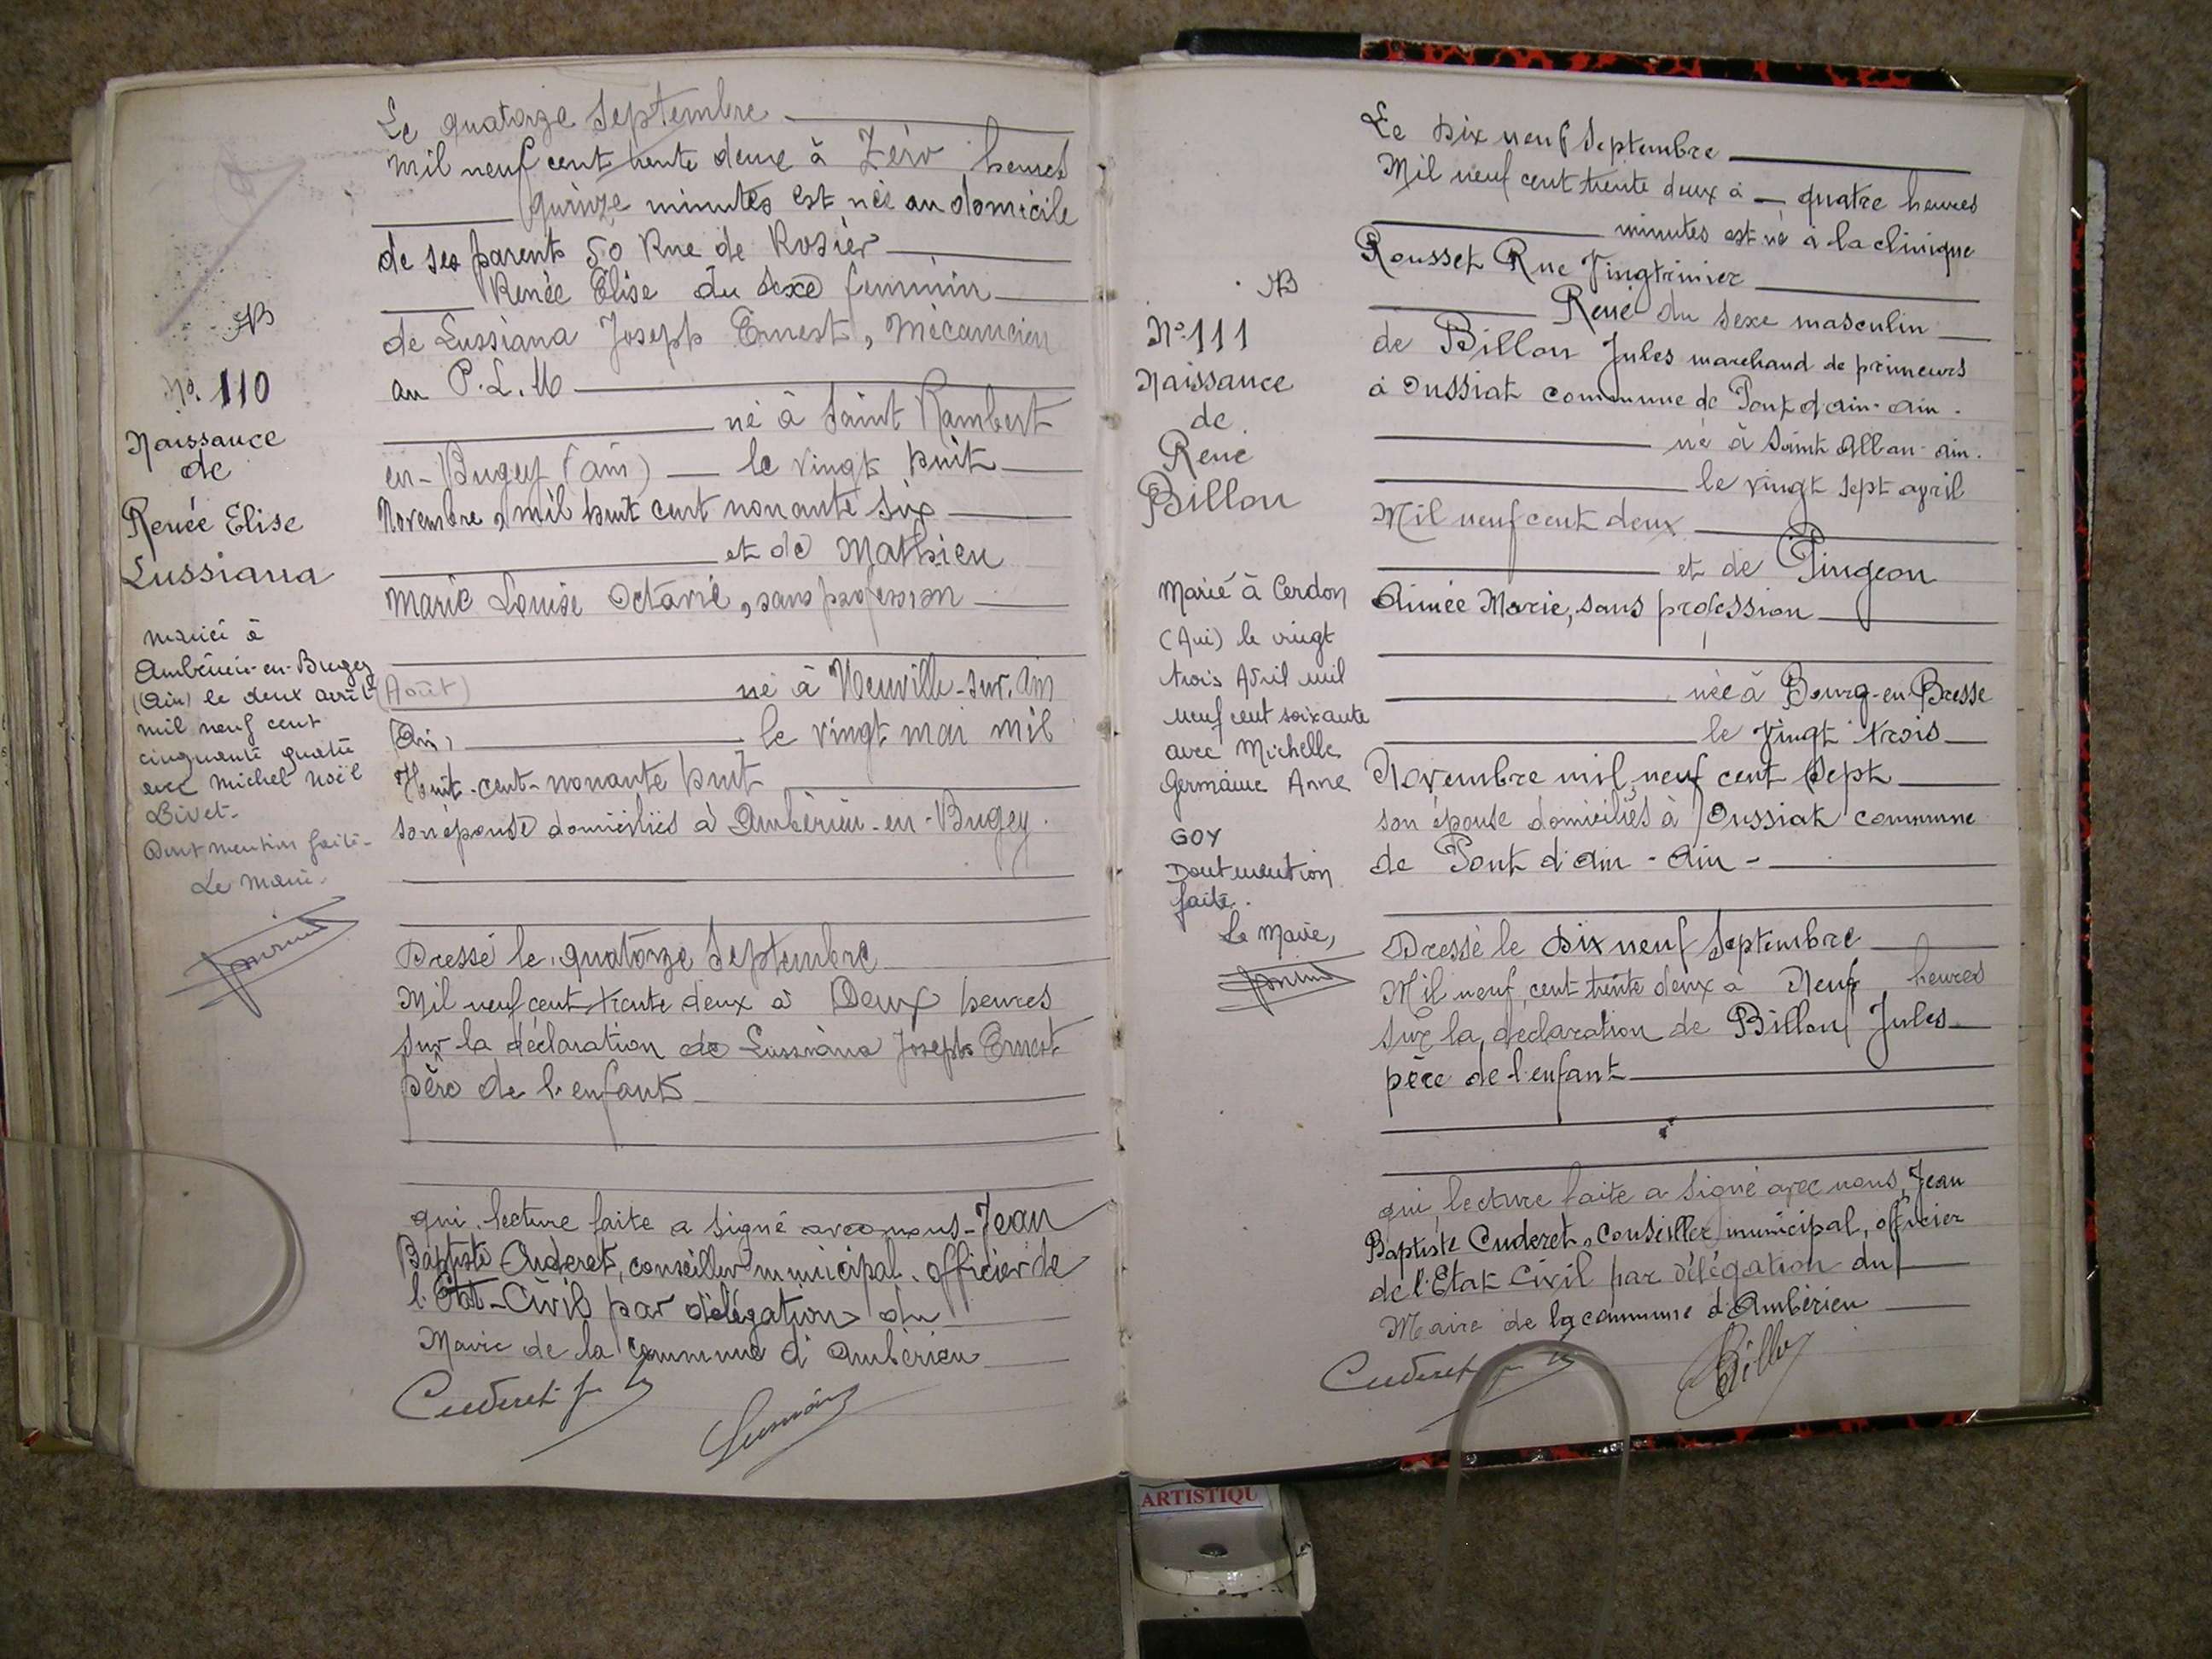 Le quatorze Septembre
Mil neuf cent trente deux à Zéro heures
quinze minutes est née au domicile
de ses parents 50 Rue de Rosier
Renée Elise du sexe feminin
de Lussiana Joseph Ernest, Mécanicien
au P.L.M
né à Saint Rambert
en-Bugey (ain) le vingt huit
Novembre, mil huit cent nonante six
et de Mathieu
Marie Louise Octavie, sans profession
née à Neuville-sur-Ain
(Ain) le vingt mai mil
Huit-cent-nonante huit
son épouse domiciliés à Ambérieu-en-Bugey.
Dressé le quatorze Septembre
Mil neuf cent trente deux à Deux heures
sur la déclaration de Lussiana Joseph Ernest
père de l'enfant
qui, lecture faite a signé avec nous Jean
Baptiste Cuderet, conseiller municipal, officier de
l'Etat-Civil par délégation du
Maire de la commune d'Ambérieu
Cuderet
AB
No. 110
Naissance
de
Renée Elise
Lussiana
mariée à
Ambérieu-en-Bugey
(Ain) le deux avril (Août)
mil neuf cent
cinquante quatre
avec Michel Noël
Livet-
Dont mention faite-
Le Maire.
Le Dix neuf Septembre
Mil neuf cent trente deux à quatre heures
minutes est né à la clinique
Rousset Rue Vingtrinier
René du sexe masculin
de Billon Jules marchand de primeurs
à Oussiat commune de Pont d'ain-ain.
né à Saint Alban-ain.
le vingt sept avril
Mil neuf cent deux
et de Pingeon
Aimée Marie, sans profession
née à Bourg-en-Bresse
le Vingt trois
Novembre mil neuf cent Sept
son épouse domiciliés à Oussiat commune
de Pont d'Ain-Ain-
Dressé le Dix neuf Septembre
Mil neuf cent trente deux à Neuf heures
sur la déclaration de Billon Jules
père de l'enfant
qui, lecture faite a signé avec nous, Jean
Baptiste Cuderet, Conseiller municipal, officier
de l'Etat Civil par délégation du
Maire de la commune d'Ambérieu
Cuderet
Billon
AB
No. 111
Naissance
de
René
Billon
Marié à Cerdon
(Ain) le vingt
trois Avril mil
neuf cent soixante
avec Michelle
Germaine Anne
GOY
Dont mention
faite.
Le Maire,
ARTISTIQU